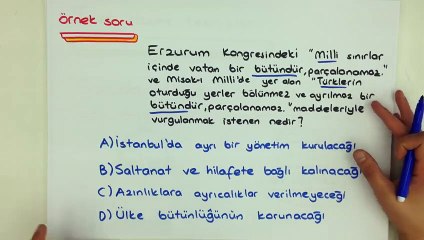 örnek soru
Erzurum kongresindeki "Milli sınırlar
içinde vatan bir bütündür, parçalanamaz."
ve Misak-ı Milli'de yer alan "Türklerin
oturduğu yerler bölünmez ve ayrılmaz bir
bütündür, parçalanamaz." maddeleriyle
vurgulanmak istenen nedir?
A) İstanbul'da ayrı bir yönetim kurulacağı
B) Saltanat ve hilafete bağlı kalınacağı
C) Azınlıklara ayrıcalıklar verilmeyeceği
D) Ülke bütünlüğünün korunacağı